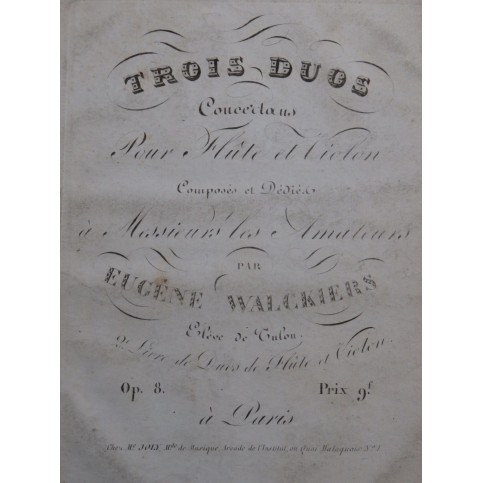 TROIS DUOS
Concertans
Pour Flûte et Violon
Composés et Dédiés
à Messieurs les Amateurs
PAR
EUGÈNE WALCKIERS
Elève de Tulou.
2e Livre de Duos de Flûte et Violon.
Op. 8. Prix 9f
à Paris
Chez Me JOLY, Mde de Musique, Arcade de l'Institut, au Quai Malaquais No 1